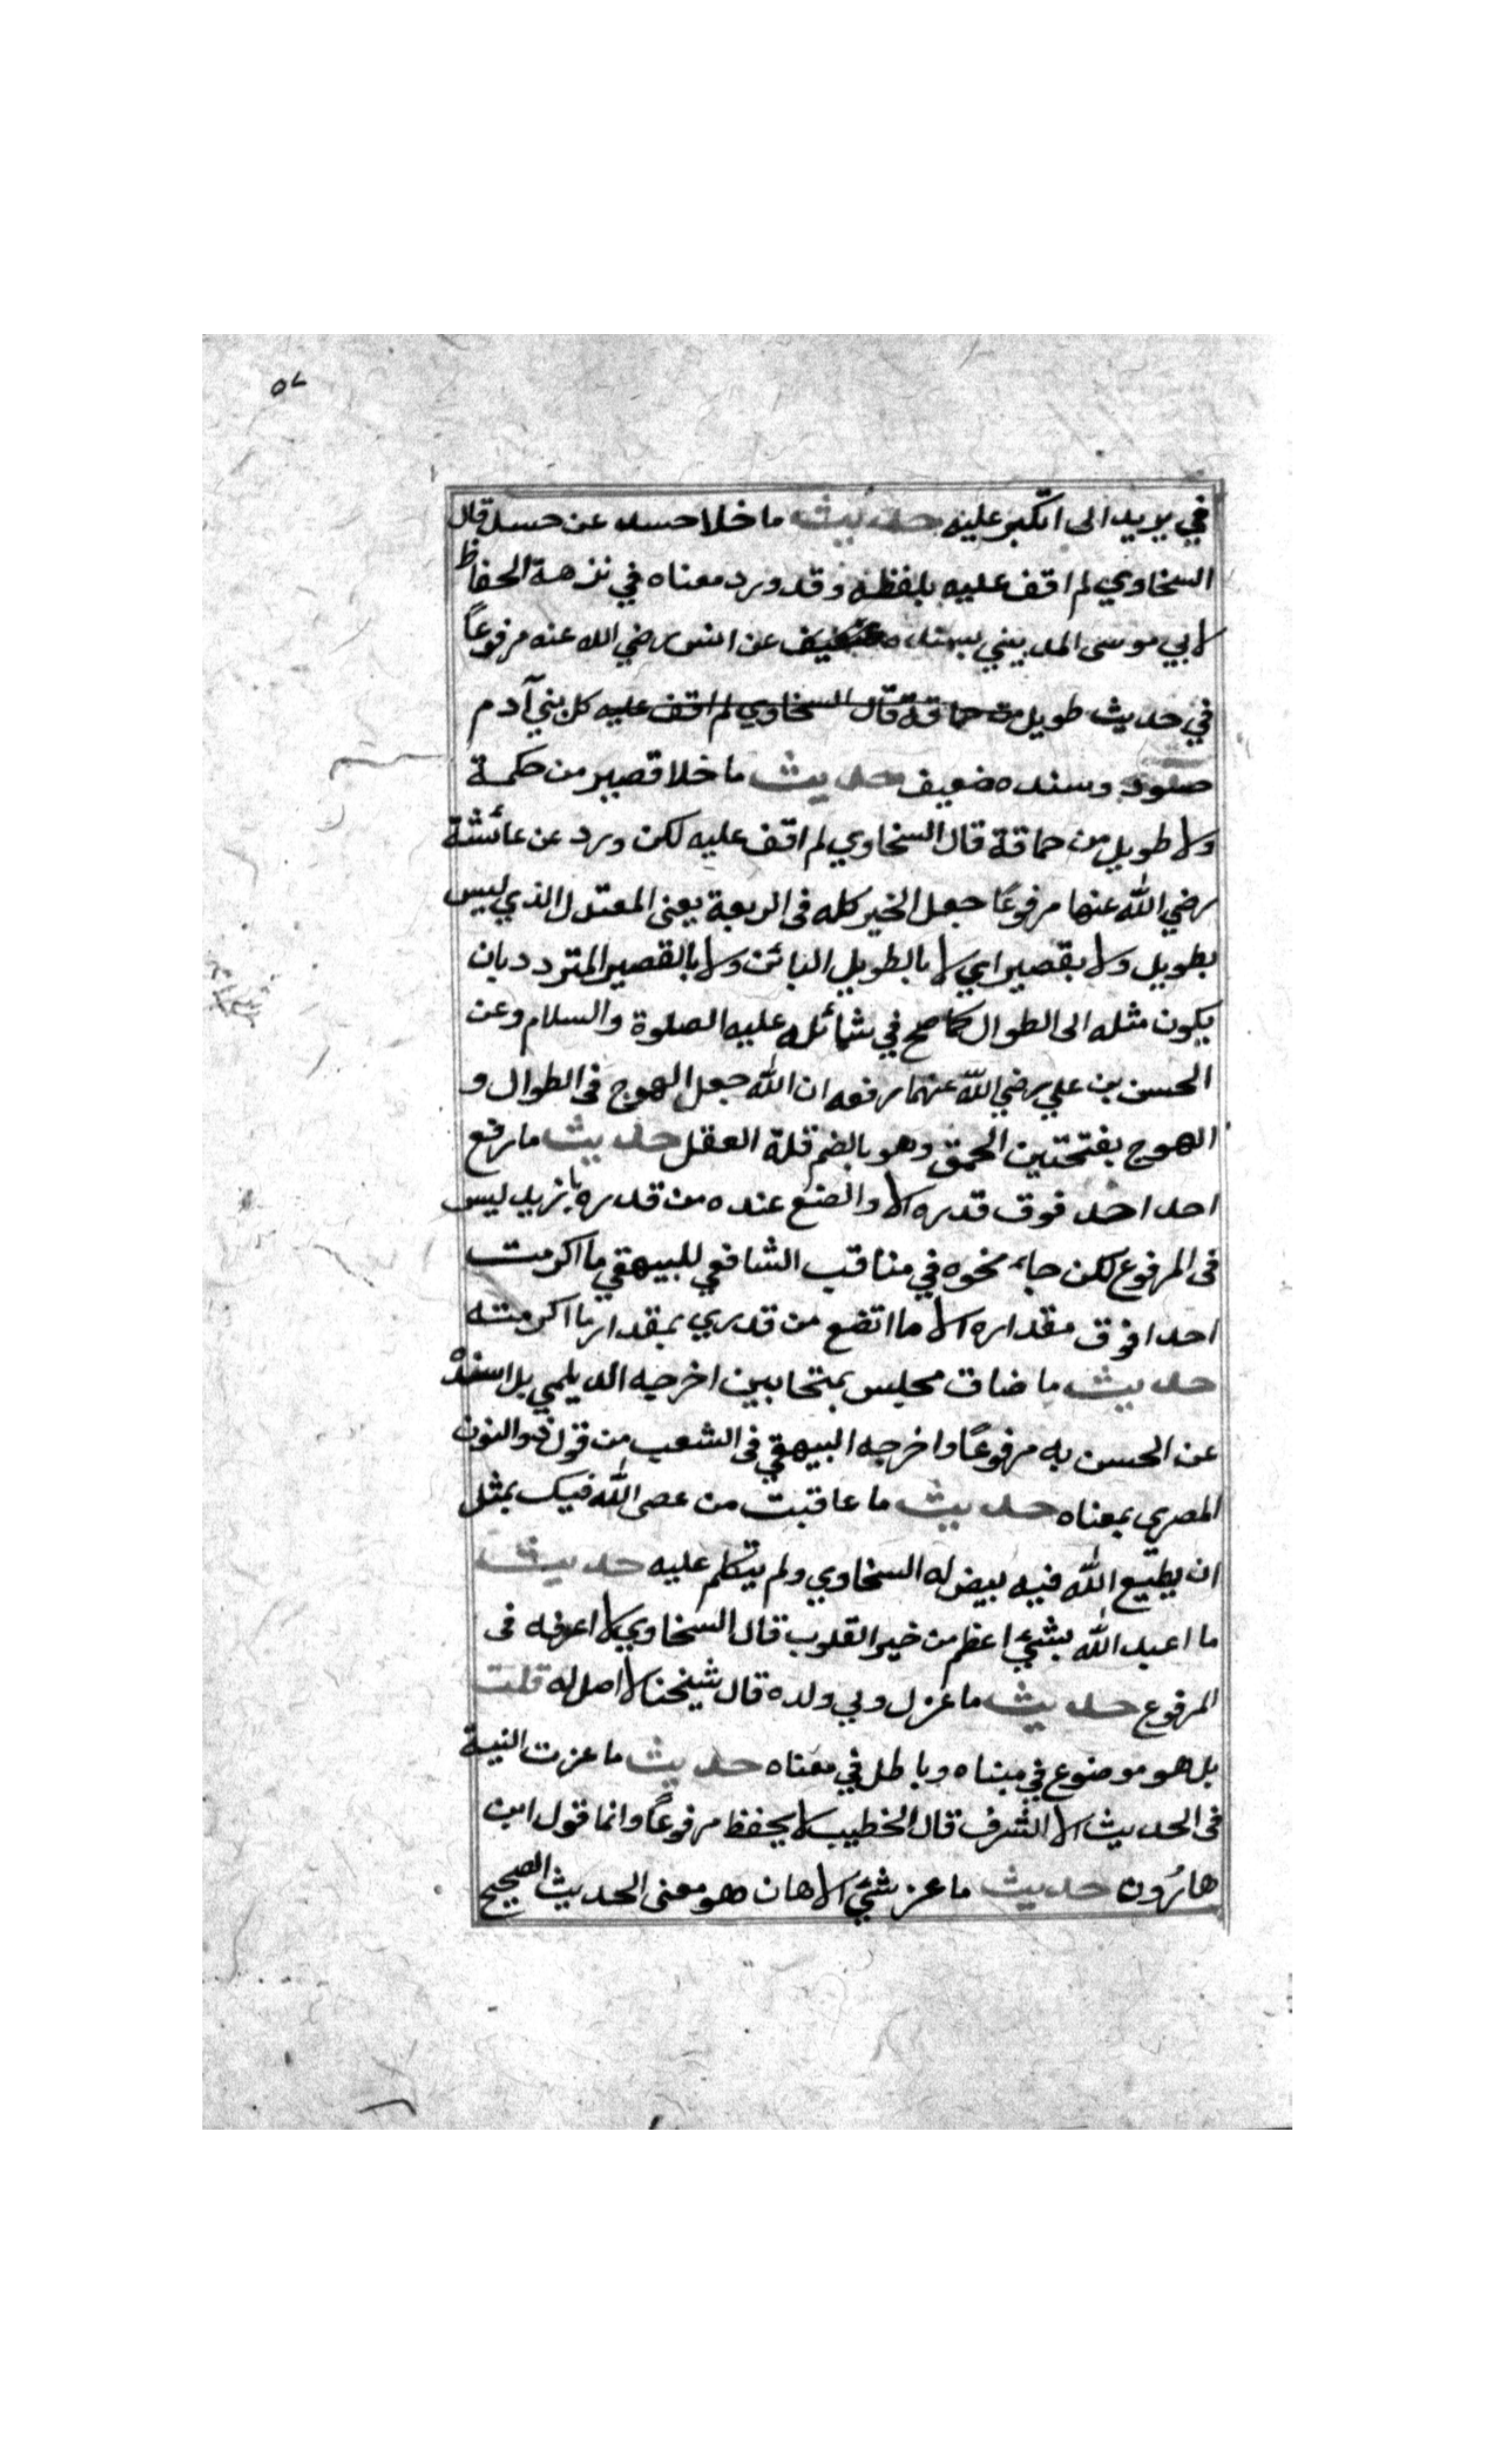 ٥٧
في يريد الى اتكبر عليه حديث ما خلا حسد عن حسد قال
السخاوي لم اقف عليه بلفظه وقد ورد معناه في نزهة الحفاظ
لابي موسى المديني بسنده ضعيف عن انس رضي الله عنه مرفوعاً
في حديث طويل من حماقة قال السخاوي لم اقف عليه كل بني آدم
حسود وسنده ضعيف حديث ما خلا قصير من حكمة
ولا طويل من حماقة قال السخاوي لم اقف عليه لكن ورد عن عائشة
رضي الله عنها مرفوعاً جعل الخير كله فى الربعة يعنى المعتدل الذي ليس
بطويل ولا بقصير اي لا بالطويل البائن ولا بالقصير المتردد بان
يكون مثله الى الطوال كما صح في شمائله عليه الصلوة والسلام وعن
الحسن بن علي رضي الله عنهما رفعه ان الله جعل الهوج فى الطوال و
الهوج بفتحتين الحمق وهو بالضم قلة العقل حديث ما رفع
احد احد فوق قدره الا واتضع عنده من قدره بازيد ليس
فى المرفوع لكن جاء نحوه في مناقب الشافعي للبيهقي ما اكرمت
احدا فوق مقداره الا ما اتضع من قدري بمقدار ما اكرمته
حديث ما ضاق مجلس بمتحابين اخرجه الديلمي بل اسنده
عن الحسن به مرفوعاً واخرجه البيهقي فى الشعب من قول ذو النون
المصري بمعناه حديث ما عاقبت من عصى الله فيك بمثل
ان يطيع الله فيه بيض له السخاوي ولم يتكلم عليه حديث
ما اعبد الله بشئ اعظم من خير القلوب قال السخاوي لا اعرفه فى
المرفوع حديث ما عزل ولي ولده قال شيخنا لا اصل له قلت
بل هو موضوع في مبناه وباطل في معناه حديث ما عزت النية
فى الحديث الا لشرف قال الخطيب لا يحفظ مرفوعاً وانما قول ابن
هارُون حديث ما عز شئ الا هان هو معنى الحديث الصحيح